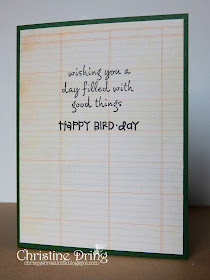 wishing you a
day filled with
good things
HAPPY BIRD·daY
Christine Dring